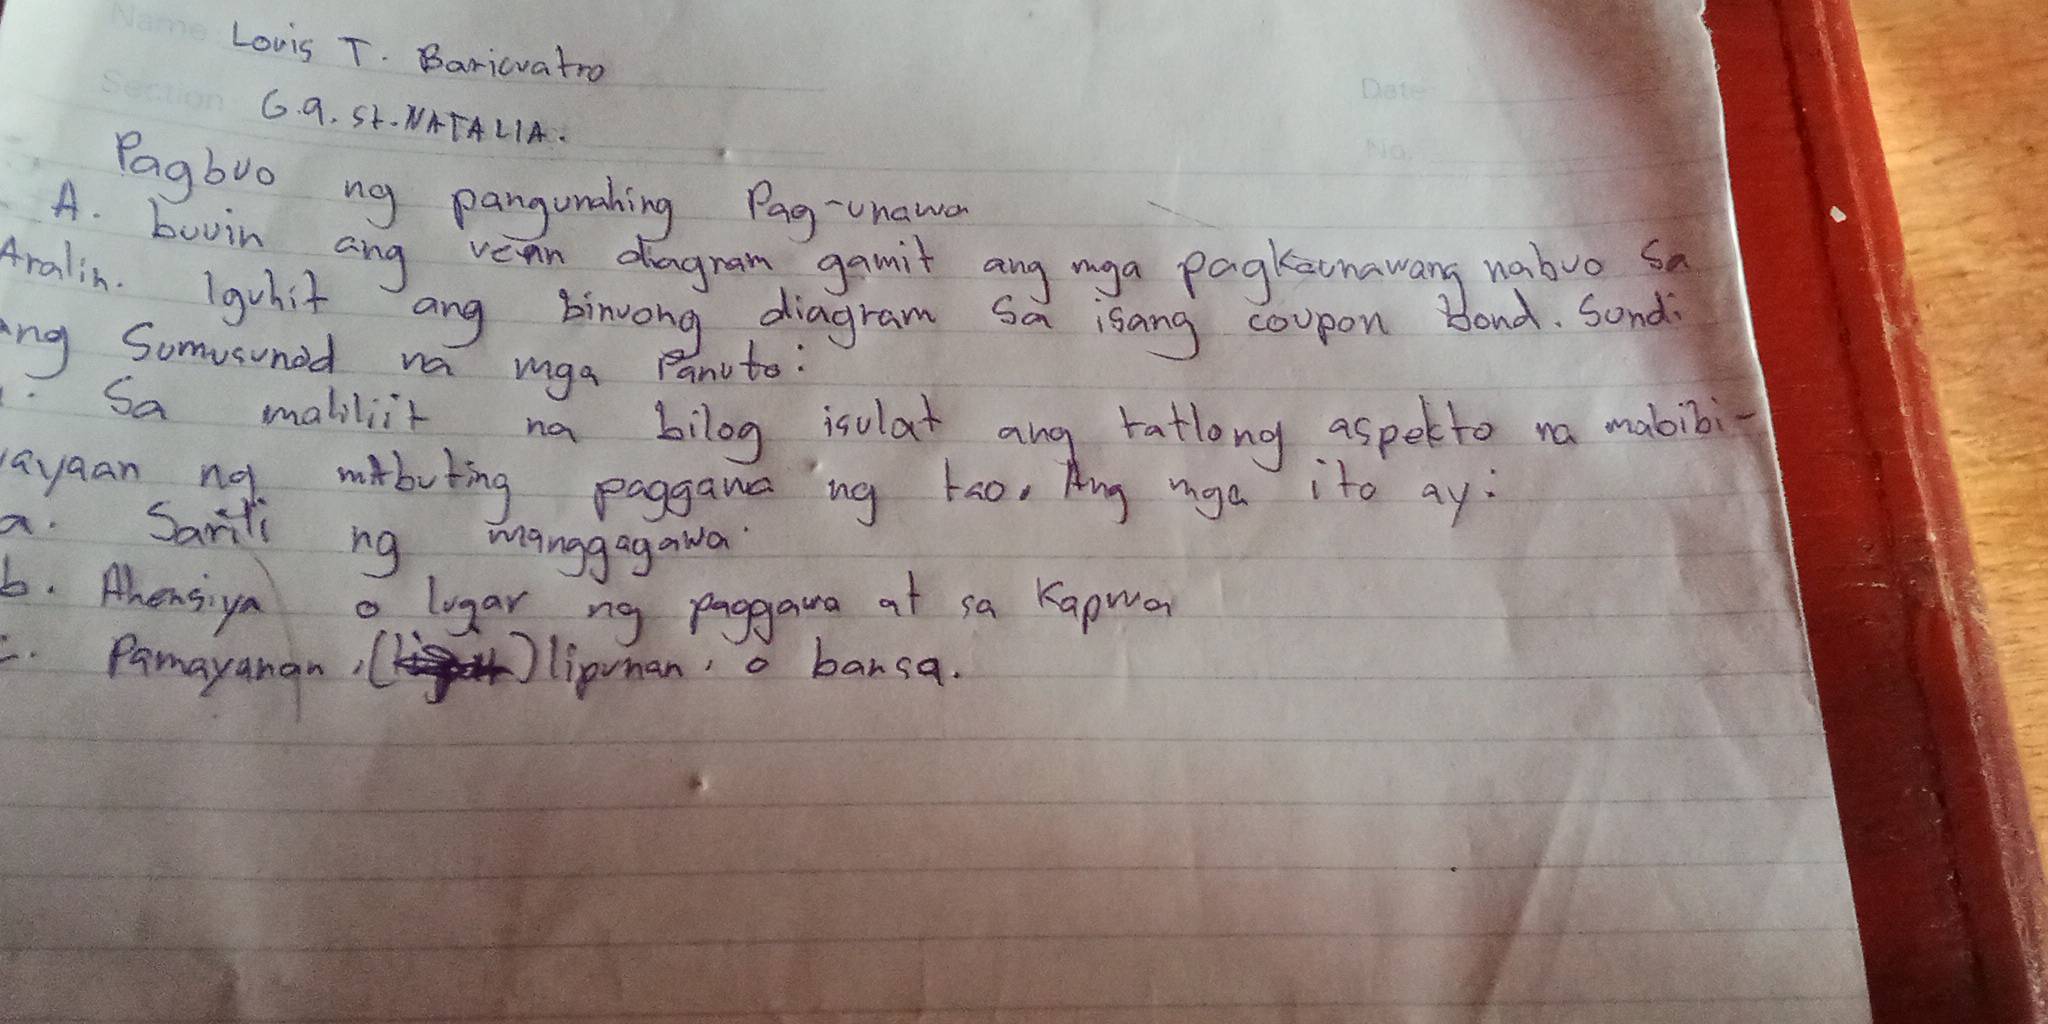 Name Louis T. Baricuatro
Date
Section G.9. St. NATALIA.
No.
Pagbuo ng pangunahing Pag-unawa
A. buuin ang venn diagram gamit ang mga pagkaunawang nabuo sa
Aralin. Iguhit ang binuong diagram sa isang coupon bond. Sundi
ang Sumusunod na mga Panuto:
1. Sa maliliit na bilog isulat ang tatlong aspekto na mabibi-
yayaan ng mabuting paggawa ng tao. Ang mga ito ay:
a. Sarili ng manggagawa.
b. Ahensiya o lugar ng paggawa at sa Kapwa
c. Pamayanan, ( ) lipunan, o bansa.